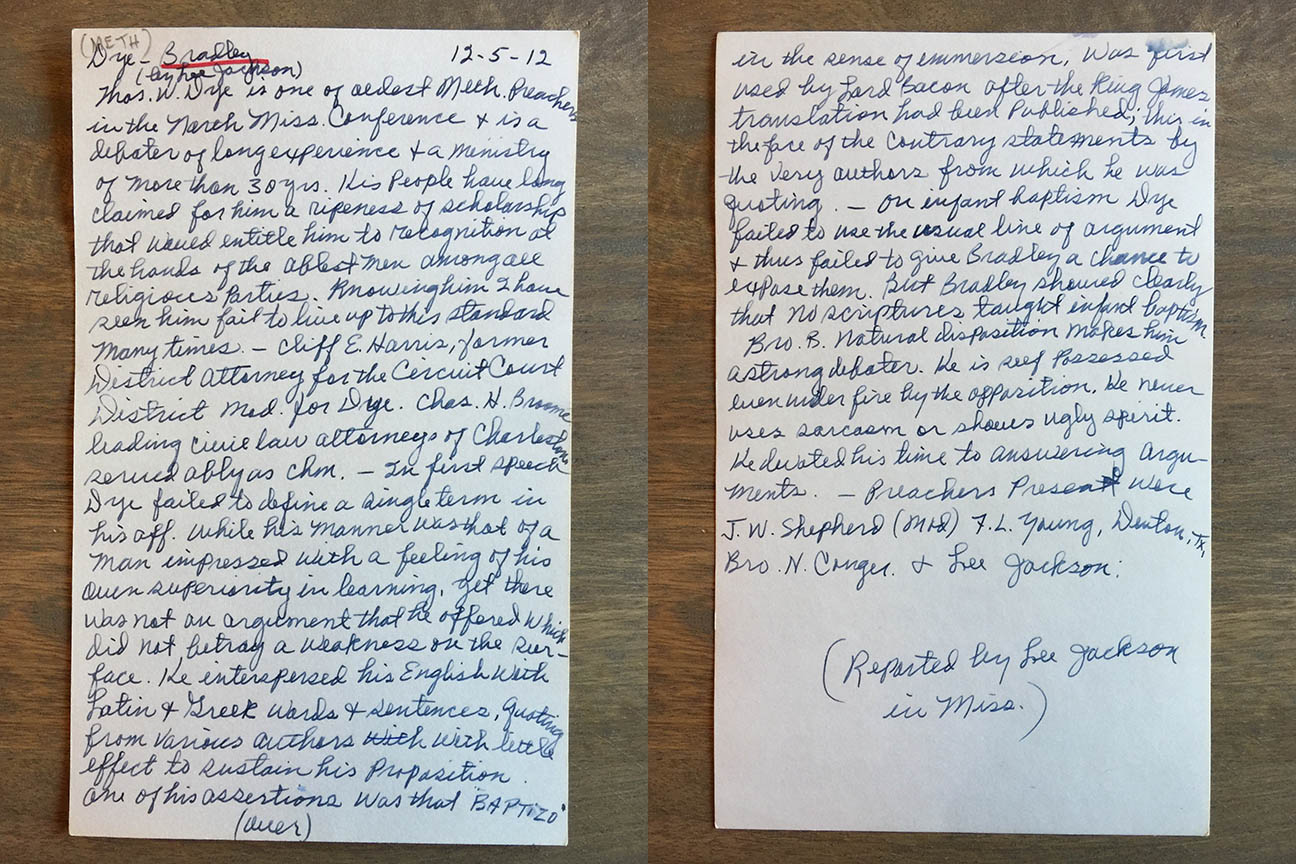 (METH)
Dye - Bradley 12-5-12
(by Lee Jackson)
Thos. W. Dye is one of oldest Meth. Preachers
in the North Miss. Conference & is a
debater of long experience & a ministry
of more than 30 yrs. His People have long
claimed for him a ripeness of scholarship
that would entitle him to recognition at
the hands of the ablest men among all
religious Parties. Knowing him I have
seen him fail to live up to this standard
many times. — Cliff E. Harris, former
District Attorney for the Circuit Court
District Mod. for Dye. Chas. H. Broome
leading civic law attorneys of Charleston
served ably as chm. — In first speech
Dye failed to define a single term in
his aff. while his manner was that of a
man impressed with a feeling of his
own superiority in learning, yet there
was not an argument that he offered which
did not betray a weakness on the sur-
face. He interspersed his English with
Latin & Greek words & sentences, quoting
from various authors with with little
effect to sustain his Proposition.
One of his assertions was that "BAPTIZO"
(over)
in the sense of emmersion, was first
used by Lord Bacon after the King James
translation had been Published; this in
the face of the contrary statements by
the very authors from which he was
quoting. — On infant baptism Dye
failed to use the usual line of argument
& thus failed to give Bradley a chance to
expose them. But Bradley showed clearly
that no scriptures taught infant baptism
Bro. B. Natural disposition makes him
a strong debater. He is self Possessed
even under fire by the opposition. He never
uses sarcasm or shows ugly spirit.
He devoted his time to answering argu-
ments. — Preachers Present were
J. W. Shepherd (Mod) F. L. Young, Denton, Tx,
Bro. N. Conger. & Lee Jackson.
(Reported by Lee Jackson
in Miss.)